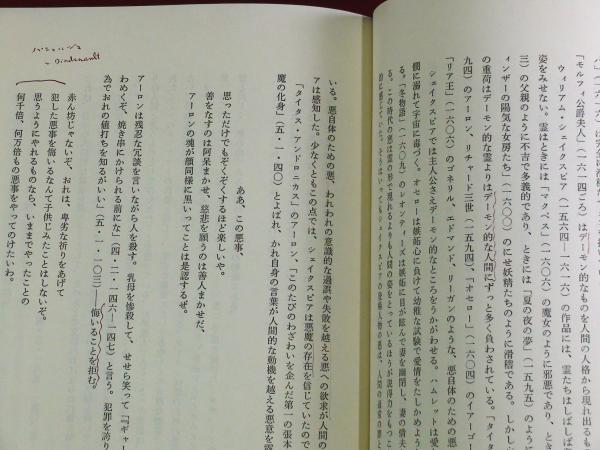 「モルフィ公爵夫人」（一六一四ごろ）はデーモン的なものを人間の姿から現れ出るもの
ウィリアム・シェイクスピア（一五六四－一六一六）の作品には、霊たちはしばしば
姿をみせない。霊はときには「マクベス」（一六〇六）の魔女のように邪悪であり、とき
三）の父親のように不吉で多義的であり、ときには「夏の夜の夢」（一五九五）のように
ィンザーの陽気な女房たち」（一六〇〇）のにせ妖精たちのように滑稽である。しかし
の重荷はデーモン的な霊よりはデーモン的な人間にずっと多く負わされている。「タイタ
九四）のアーロン、リチャード三世（一五九四）、「オセロー」（一六〇四）のイアーゴー
「リア王」（一六〇六）のゴネリル、エドマンド、リーガンのような、悪自体のための悪
シェイクスピアでは主人公さえデーモン的なところをうかがわせる。ハムレットは愛
に溺れて宇宙に毒づく。オセローは嫉妬心に負けて幼稚な試験で愛情をたしかめよう
る。「冬物語」（一六〇九）のレオンティーズは嫉妬に目が眩んで妻を幽閉し、妻の情夫
る。この時代の悪は霊の形で現れるよりも人間の姿をとっているほうが説得力をもつこ
いる。悪自体のための悪、われわれの意識的な過誤や失敗を越える悪への欲求が人間の
アは感知した。少なくともこの点では、シェイクスピアは悪魔の存在を信じていたので
「タイタス・アンドロニカス」のアーロン、「このたびのわざわいを企んだ第一の張本
魔の化身」（五・一・四〇）とよばれ、かれ自身の言葉が人間的な動機を越える悪意を露
ああ、この悪事、
思っただけでもぞくぞくするほど楽しいや。
善をなすのは阿呆まかせ、慈悲を願うのは善人まかせだ、
アーロンの魂が顔同様に黒いってことは是認するぜ。
アーロンは残忍な冗談を言いながら人を殺す。乳母を惨殺して、せせら笑って『ギャー
わめくぞ、焼き串にかけられる前にな」（四・二・一四六－一四七）と言う。犯罪を誇り
為でおれの値打ちを知るがいい」（五・一・一〇三）――悔いることを拒む。
赤ん坊じゃないぞ、おれは、卑劣な祈りをあげて
犯した悪事を悔いるなんて子供じみたことはしないぞ。
思うようにやれるものなら、いままでやったことの
何千倍、何万倍もの悪事をやってのけたいわ。